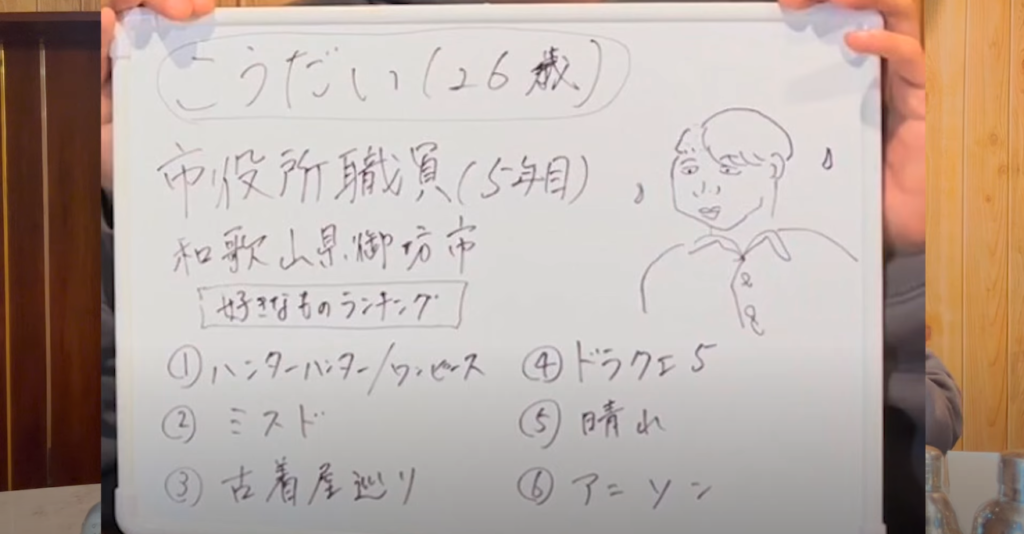 こうだい(26歳)
市役所職員(5年目)
和歌山県御坊市
好きなものランキング
①ハンターハンター/ワンピース
②ミスド
③古着屋巡り
④ドラクエ5
⑤晴れ
⑥アニソン